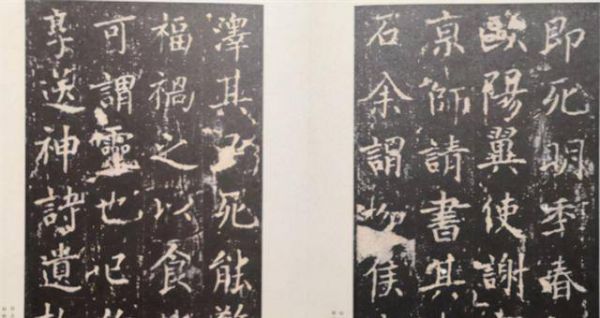 即死明年春
歐陽翼使謝
京師請書其
石余謂柳侯
澤其民死能
福禍之以食
可謂靈也已
享送神詩遺